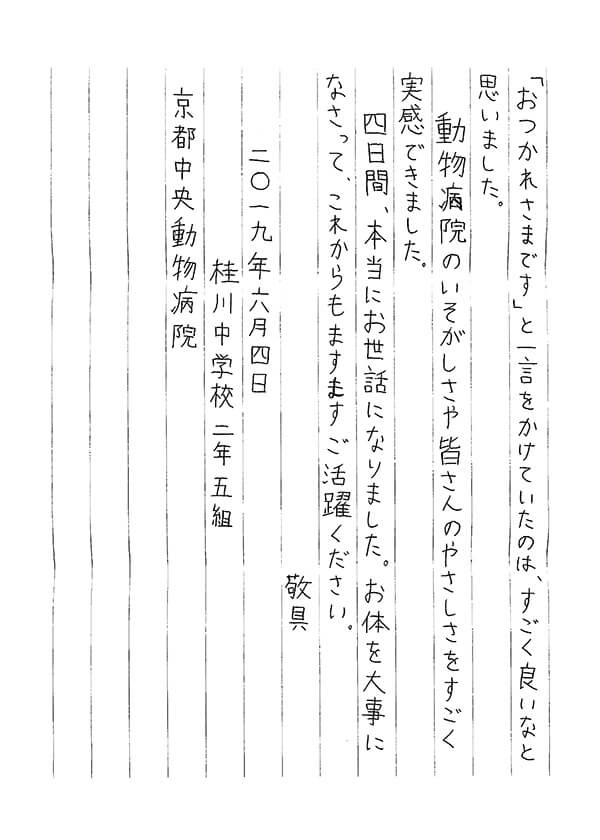 「おつかれさまです」と一言をかけていたのは、すごく良いなと
思いました。
動物病院のいそがしさや皆さんのやさしさをすごく
実感できました。
四日間、本当にお世話になりました。お体を大事に
なさって、これからもますますご活躍ください。
敬具
二〇一九年六月四日
桂川中学校二年五組
京都中央動物病院